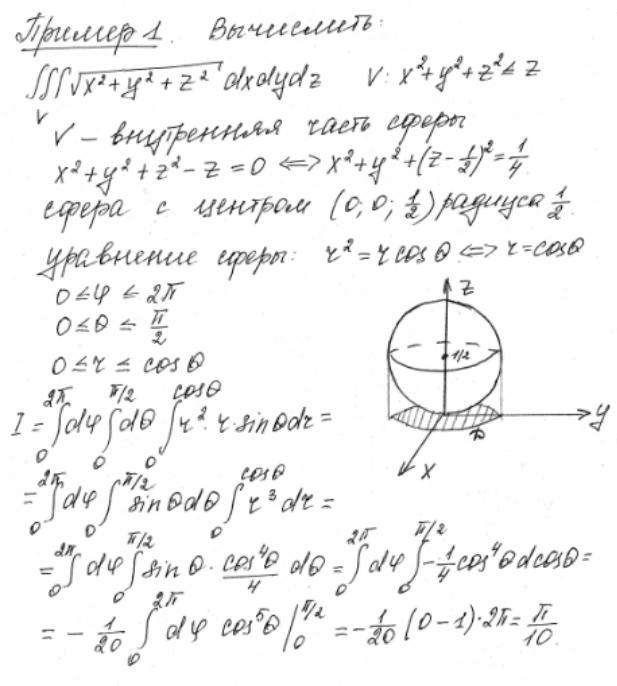 Пример 1. Вычислить:
∭√(x²+y²+z²) dxdydz   V: x²+y²+z² ≤ z
V
V – внутренняя часть сферы
x²+y²+z²-z=0 ⟺ x²+y²+(z-1/2)²=1/4
сфера с центром (0; 0; 1/2) радиуса 1/2.
уравнение сферы: r²=r cosθ ⟺ r=cosθ
0≤φ≤2π
0≤θ≤π/2
0≤r≤cosθ
z
1/2
y
D
x
I = ∫₀^{2π} dφ ∫₀^{π/2} dθ ∫₀^{cosθ} r²·r·sinθdr =
= ∫₀^{2π} dφ ∫₀^{π/2} sinθdθ ∫₀^{cosθ} r³dr =
= ∫₀^{2π} dφ ∫₀^{π/2} sinθ · cos⁴θ/4 dθ = ∫₀^{2π} dφ ∫₀^{π/2} -1/4 cos⁴θ dcosθ =
= -1/20 ∫₀^{2π} dφ cos⁵θ |₀^{π/2} = -1/20 (0-1)·2π = π/10.